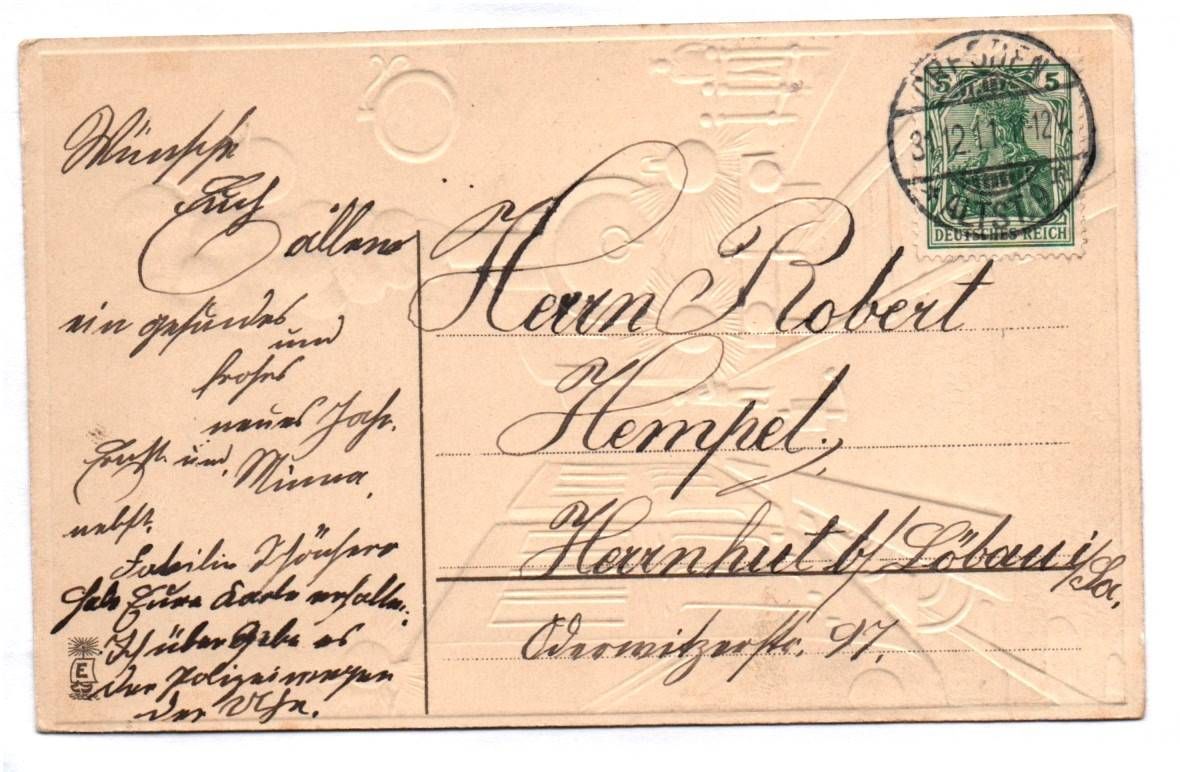 Wünsche
Euch
allen
ein gesundes
und
frohes
neues Jahr.
Ernst und
Minna,
nebst
Familie Schönherr
habe Eure Karte erhalten.
Ich übergebe es
der Polizei wegen
der Uhr.
Herrn Robert
Hempel.
Herrnhut b/ Löbau i/Sa.
Oderwitzerstr. 97.
DRESDEN
31.12.11
-12
ALTST.
5 5
DEUTSCHES REICH
E